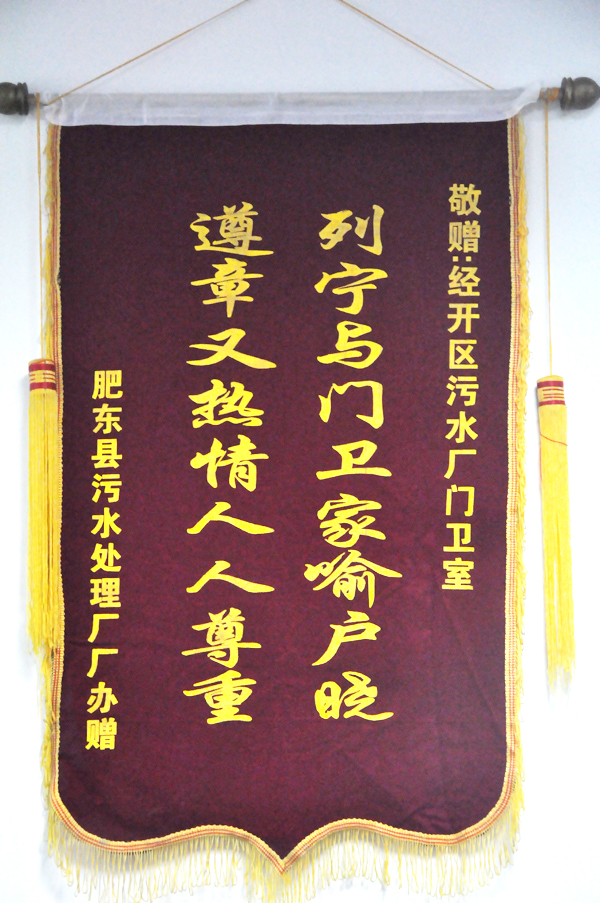 敬赠:经开区污水厂门卫室
列宁与门卫家喻户晓
遵章又热情人人尊重
肥东县污水处理厂厂办赠